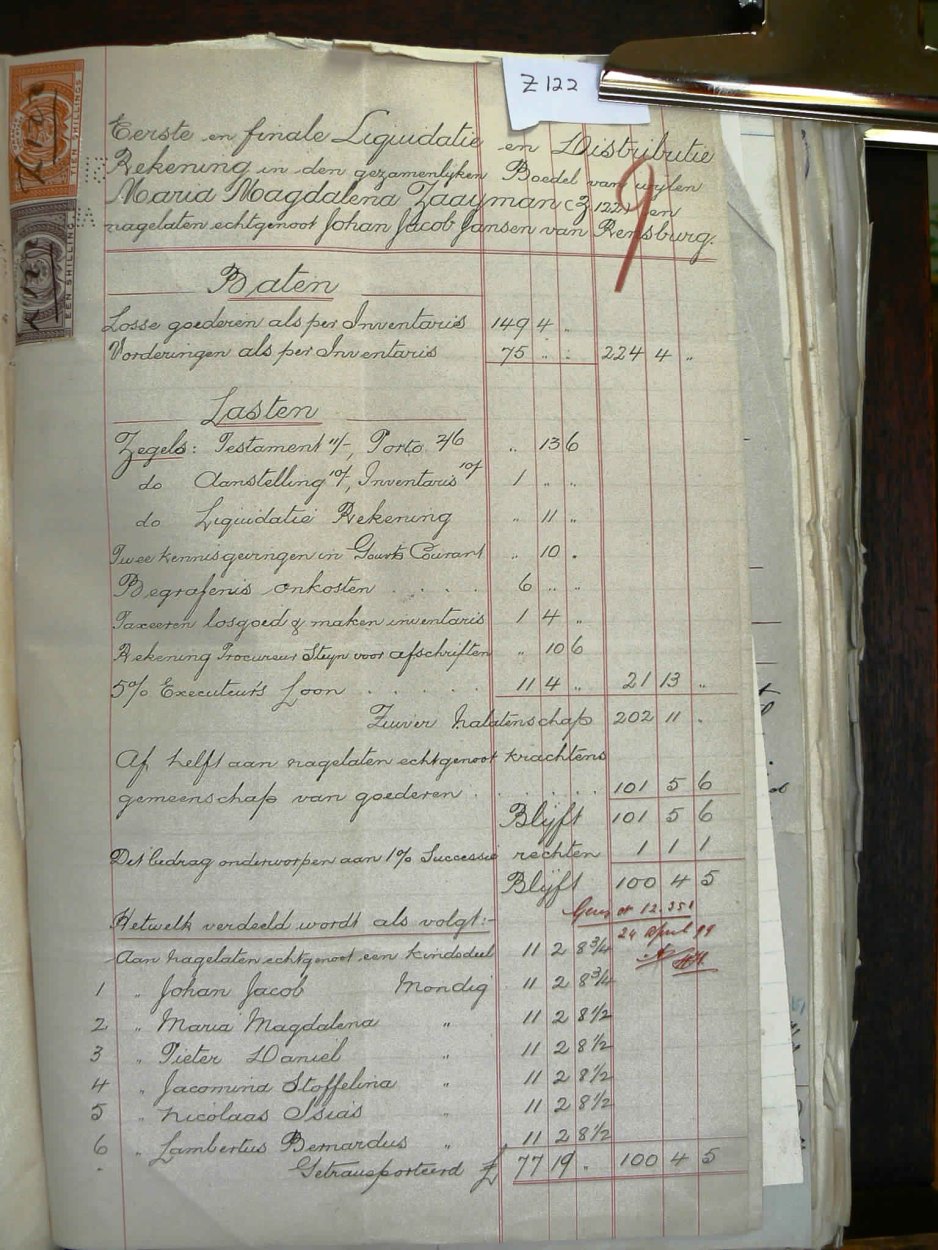 Z 122
TIEN SHILLINGS
EEN SHILLING
Eerste en finale Liquidatie en Distributie
Rekening in den gezamenlijken Boedel van wijlen
Maria Magdalena Zaayman (Z 122) en
nagelaten echtgenoot Johan Jacob Jansen van Rensburg.
9
Baten
Losse goederen als per Inventaris 149 4 "
Vorderingen als per Inventaris 75 " " 224 4 "
Lasten
Zegels: Testament 11/-, Porto 2/6 " 13 6
do Aanstelling 10/, Inventaris 10/ 1 " "
do Liquidatie Rekening " 11 "
Twee kennisgevingen in Gouvts Courant " 10 "
Begrafenis onkosten . . . . 6 " "
Taxeeren losgoed & maken inventaris 1 4 "
Rekening Procureur Steyn voor afschriften " 10 6
5% Executeurs Loon . . . . . . 11 4 " 21 13 "
Zuiver Nalatenschap 202 11 "
Af helft aan nagelaten echtgenoot krachtens
gemeenschap van goederen . . . . . . . 101 5 6
Blijft 101 5 6
Dit bedrag onderworpen aan 1% Successie rechten 1 1 1
Blijft 100 4 5
12.351
Hetwelk verdeeld wordt als volgt:-
24 April 99
Aan nagelaten echtgenoot een kindsdeel 11 2 8 3/4
1 " Johan Jacob Mondig 11 2 8 3/4
2 " Maria Magdalena " 11 2 8 1/2
3 " Pieter Daniel " 11 2 8 1/2
4 " Jacomina Stoffelina " 11 2 8 1/2
5 " Nicolaas Isias " 11 2 8 1/2
6 " Lambertus Bernardus " 11 2 8 1/2
Getransporteerd £ 77 19 " 100 4 5